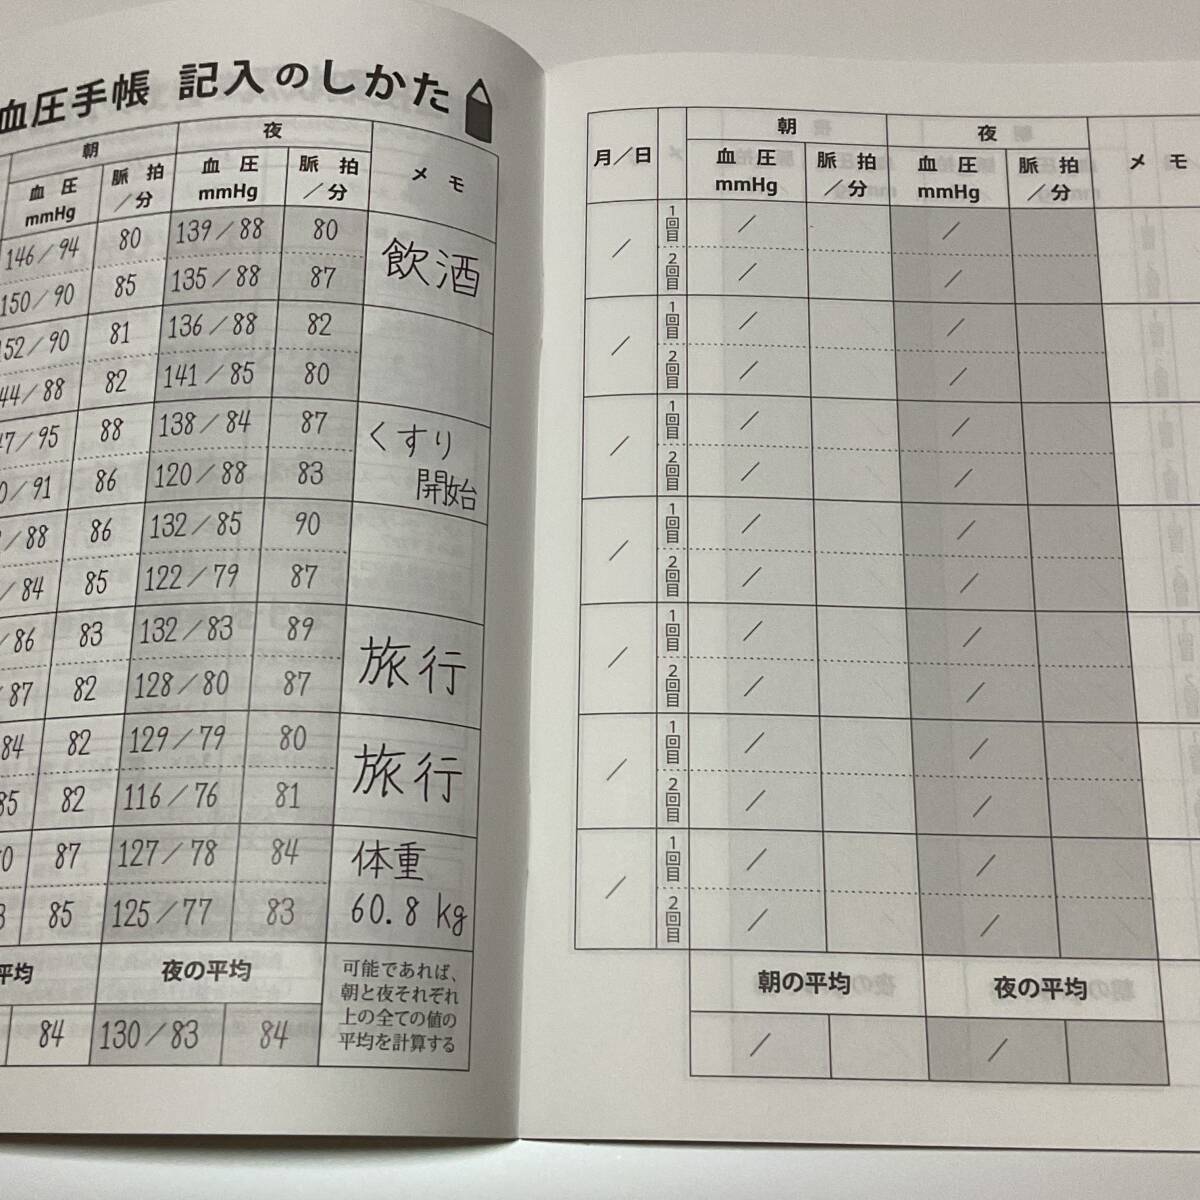 血圧手帳 記入のしかた
朝 夜 メ モ
血 圧 mmHg 脈 拍 /分 血 圧 mmHg 脈 拍 /分
146/94 80 139/88 80 飲酒
150/90 85 135/88 87
152/90 81 136/88 82
44/88 82 141/85 80
47/95 88 138/84 87 くすり
0/91 86 120/88 83 開始
/88 86 132/85 90
/84 85 122/79 87
/86 83 132/83 89 旅行
/87 82 128/80 87
84 82 129/79 80 旅行
85 82 116/76 81
0 87 127/78 84 体重
85 125/77 83 60.8 kg
平均 夜の平均
84 130/83 84
可能であれば、
朝と夜それぞれ
上の全ての値の
平均を計算する
月/日 朝 夜 メ モ
血 圧 mmHg 脈 拍 /分 血 圧 mmHg 脈 拍 /分
/ 1回目 / /
2回目 / /
/ 1回目 / /
2回目 / /
/ 1回目 / /
2回目 / /
/ 1回目 / /
2回目 / /
/ 1回目 / /
2回目 / /
/ 1回目 / /
2回目 / /
/ 1回目 / /
2回目 / /
朝の平均 夜の平均
/ /